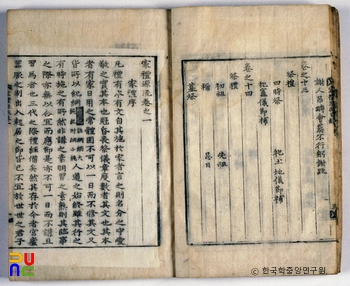 謝人吊賻會葬不行躬謝疏
卷之十三
祭禮
四時祭 祀土地儀節補
祀竈儀節補
卷之十四
祭禮
初祖 先祖
禰 忌日
墓祭
家禮源流卷之一
家禮序
凡禮有本有文自其施於家者言之則名分之守愛
敬之實其本也冠昏喪祭儀章度數者其文也其本
者有家日用之常體固不可以一日而不修其文又
皆所以紀綱人道之始終雖其行之
有時施之有所然非講之素明習之素熟則其臨事
之際亦無以合宜而應節是亦不可一日而不講且
習焉者也三代之際禮經備矣然其存於今者宮廬
器服之制出入起居之節皆已不宜於世世之君子
ⓒ 한국학중앙연구원